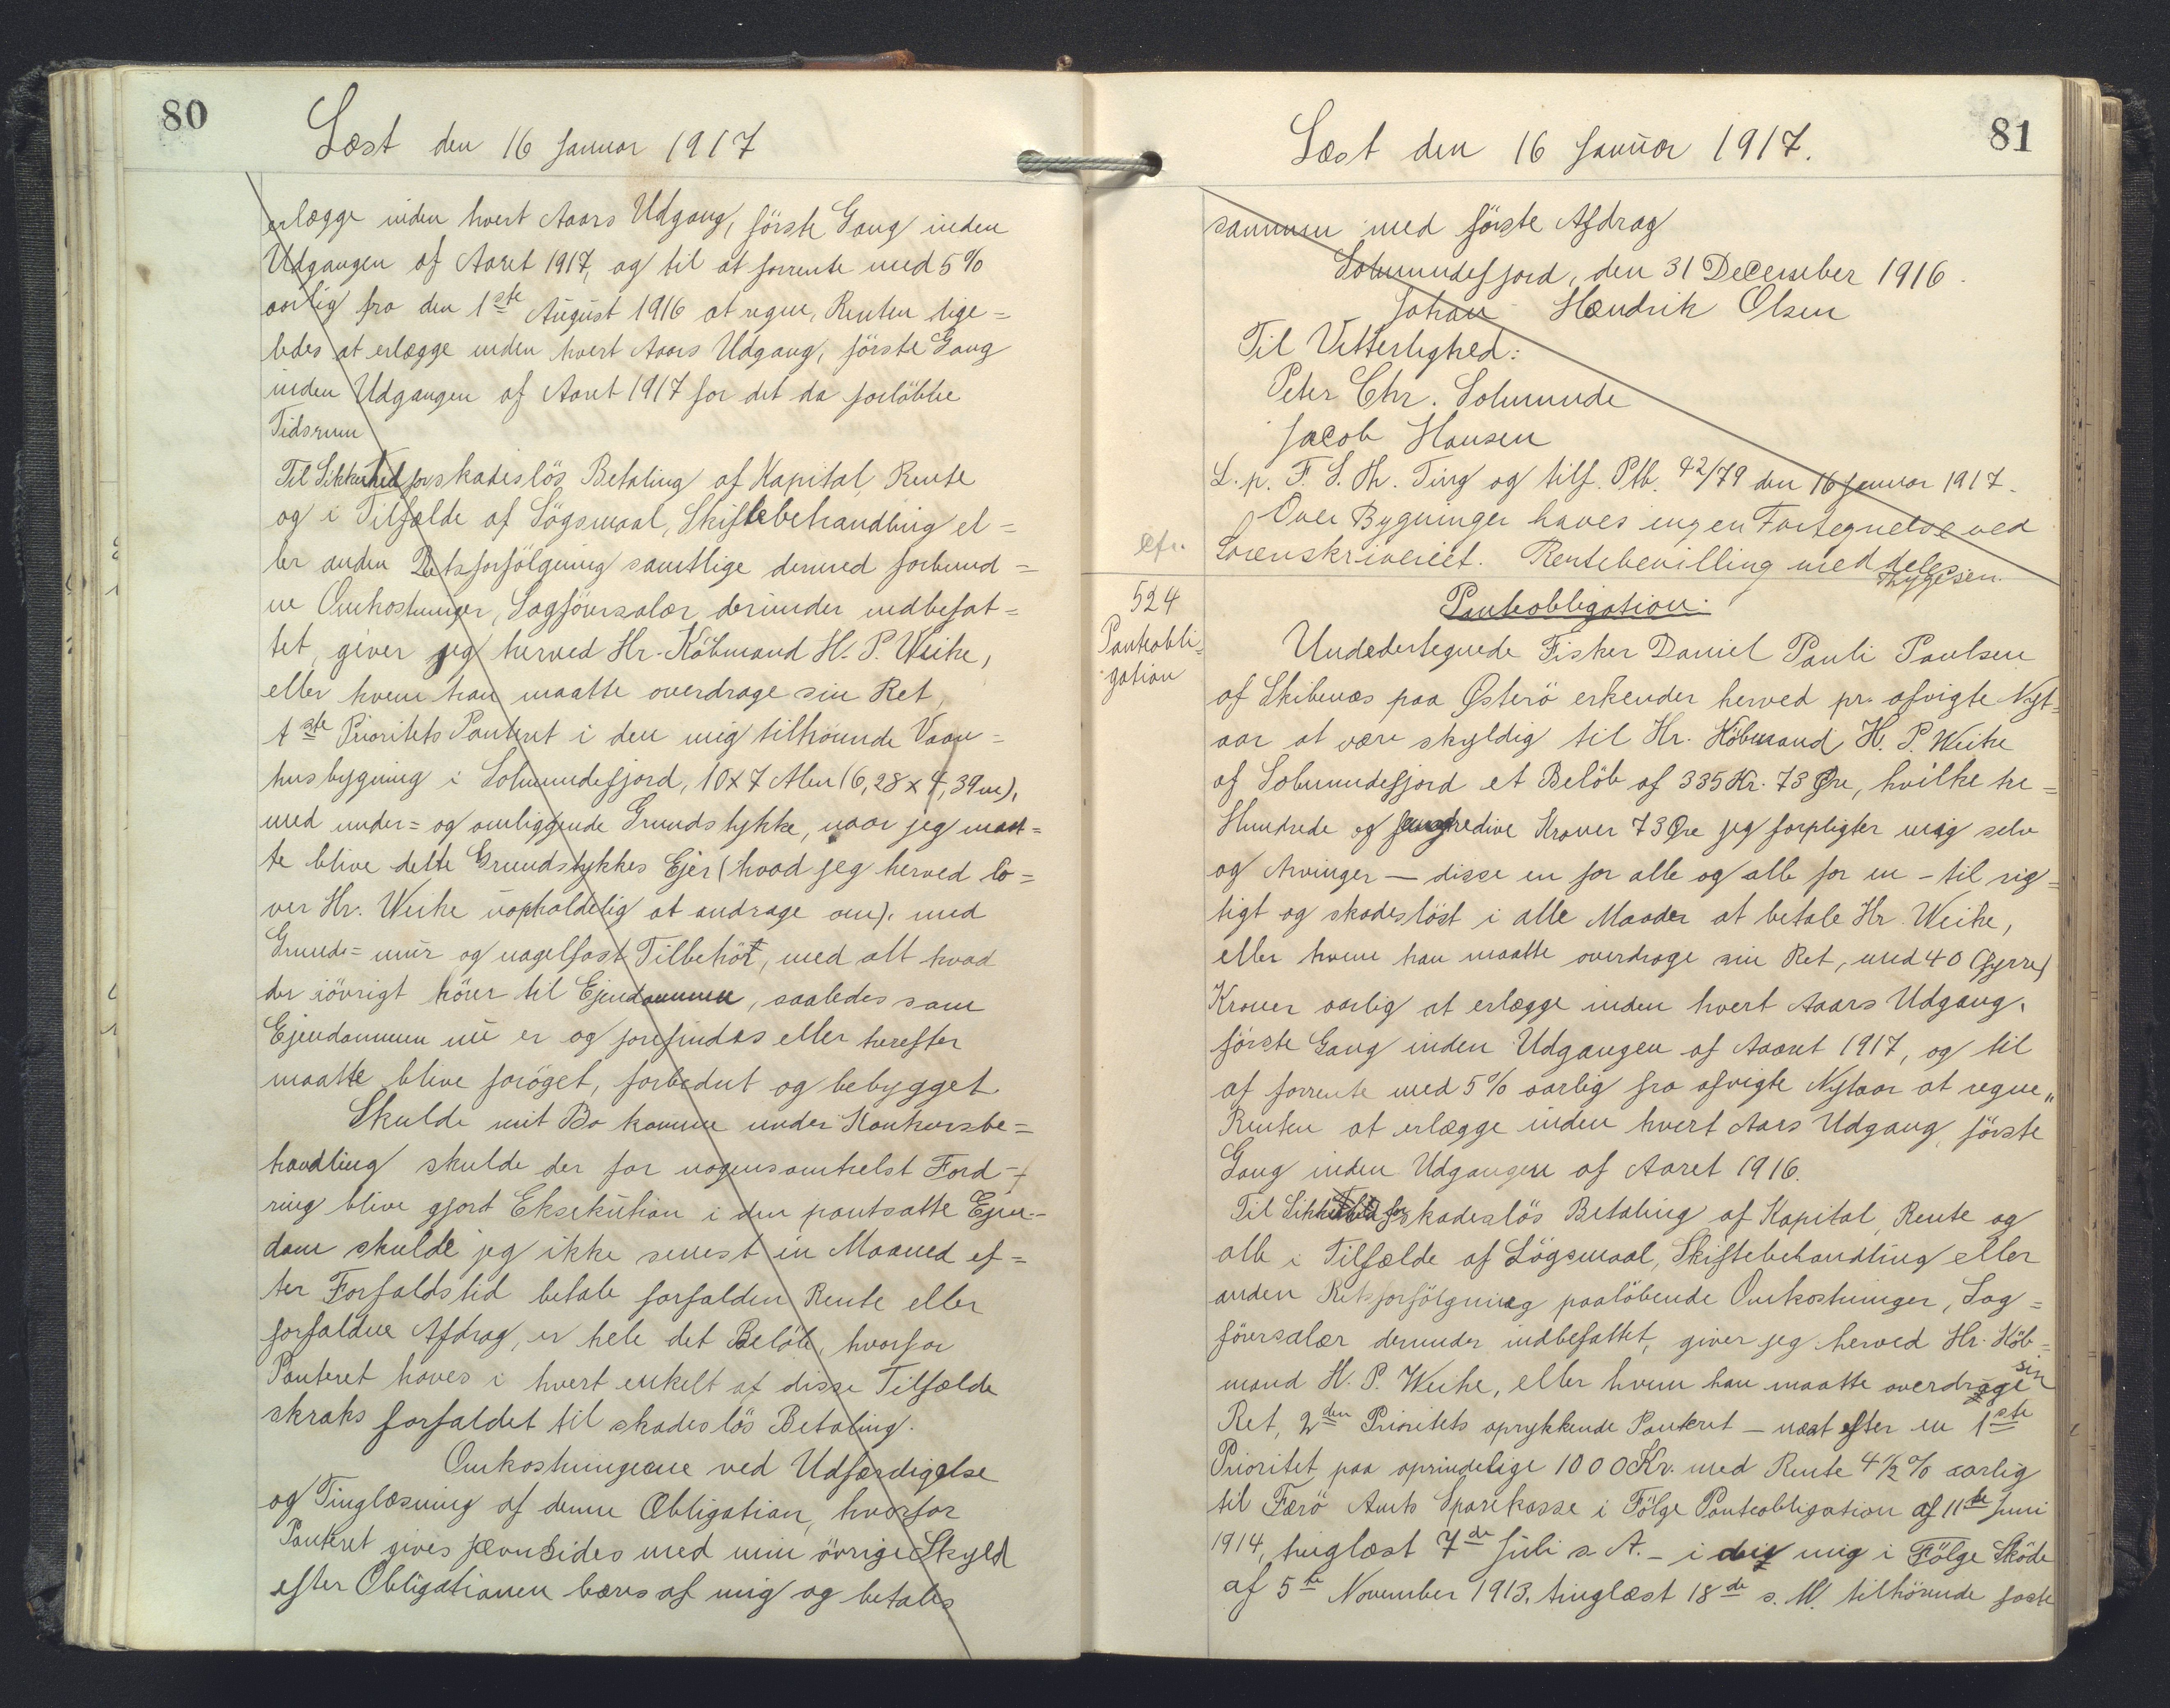 80
Læst den 16 Januar 1917
erlægge inden hvert Aars Udgang, förste Gang inden
Udgangen af Aaret 1917, og til at forrente med 5%
aarlig fra den 1ste August 1916 at regne, Renten lige=
ledes at erlægge inden hvert Aars Udgang, förste Gang
inden Udgangen af Aaret 1917 for det da forlöbne
Tidsrum
Til Sikkerhed for skadeslös Betaling af Kapital, Rente
og i Tilfælde af Lögsmaal, Skiftebehandling el=
ler anden Retsforfölgning samtlige dermed forbund=
ne Omkostninger, Sagförersalær derunder indbefat=
tet, giver jeg herved Hr. Köbmand H. P. Weihe,
eller hvem han maatte overdrage sin Ret,
1ste Prioritets Panteret i den mig tilhörende Vaan=
husbygning i Solmundefjord, 10 x 7 Alen (6,28 x 4,39 m),
med under= og omliggende Grundstykke, naar jeg maat=
te blive dette Grundstykkes Ejer (hvad jeg herved lo=
ver Hr. Weihe uopholdelig at andrage om), med
Grund= mur og nagelfast Tilbehör, med alt hvad
der iövrigt hörer til Ejendommen, saaledes som
Ejendommen nu er og forefindes eller herefter
maatte blive foröget, forbedret og bebygget
Skulde mit Bo komme under Konkursbe=
handling skulde der for nogensomhelst Ford=
ring blive gjort Eksekution i den pantsatte Ejen=
dom skulde jeg ikke senest en Maaned ef=
ter Forfaldstid betale forfalden Rente eller
forfaldne Afdrag, er hele det Belöb, hvorfor
Panteret haves i hvert enkelt af disse Tilfælde
straks forfaldet til skadeslös Betaling.
Omkostningerne ved Udfærdigelse
og Tinglæsning af denne Obligation, hvorfor
Panteret gives jævnsides med min övrige Skyld
efter Obligationen bæres af mig og betales
81
Læst den 16 Januar 1917.
sammen med förste Afdrag
Solmundefjord, den 31 December 1916.
Johan Hendrik Olsen
Til Vitterlighed:
Peter Chr. Solmunde
Jacob Hansen
L. p. F. S. Th. Ting og tilf. Ptb. 42/79 den 16 Januar 1917.
Over Bygninger haves ingen Fortegnelse ved
efr.
Sorenskriveriet. Rentebevilling meddeles
Thygesen.
524
Panteobli=
gation
Panteobligation.
Undedertegnede Fisker Daniel Pauli Paulsen
af Skibenæs paa Österö erkender herved pr. afvigte Nyt=
aar at være skyldig til Hr. Köbmand H. P. Weihe
af Solmundefjord et Belöb af 335 Kr. 73 Øre, hvilke tre=
Hundrede og Kroner 73 Øre jeg forpligter mig selv
og Arvinger — disse en for alle og alle for en – til rig=
tigt og skadeslöst i alle Maader at betale Hr. Weihe,
eller hvem han maatte overdrage sin Ret, med 40 (fyrre)
Kroner aarlig at erlægge inden hvert Aaars Udgang,
förste Gang inden Udgangen af Aaaret 1917, og til
at forrente med 5% aarlig fra afvigte Nytaar at regne,
Renten at erlægge inden hvert Aars Udgang, förste
Gang inden Udgangen af Aaret 1916.
Til Sikkerhed for skadeslös Betaling af Kapital, Rente og
alle i Tilfælde af Lögsmaal, Skiftebehandling eller
anden Retsforfölgning paalöbende Omkostninger, Sag=
förersalær derunder indbefattet, giver jeg herved Hr. Köb=
mand H. P. Weihe, eller hvem han maatte overdrage sin
Ret, 2den Prioritets oprykkende Panteret – næst efter en 1ste
Prioritet paa oprindelige 1000 Kr. med Rente 4½% aarlig
til Færö Amts Sparekasse i Fölge Panteobligation af 11te Juni
1914, tinglæst 7de Juli s. A. – i mig i Fölge Sköde
af 5te November 1913, tinglæst 18de s. M. tilhörende faste